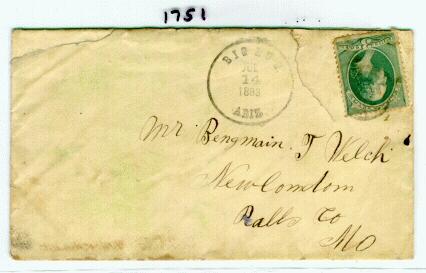 1751
BIG BUG
JUL
14
1883
ARIZ.
Mr Bengmain. T Welch
New Comdom
Ralls Co
Mo